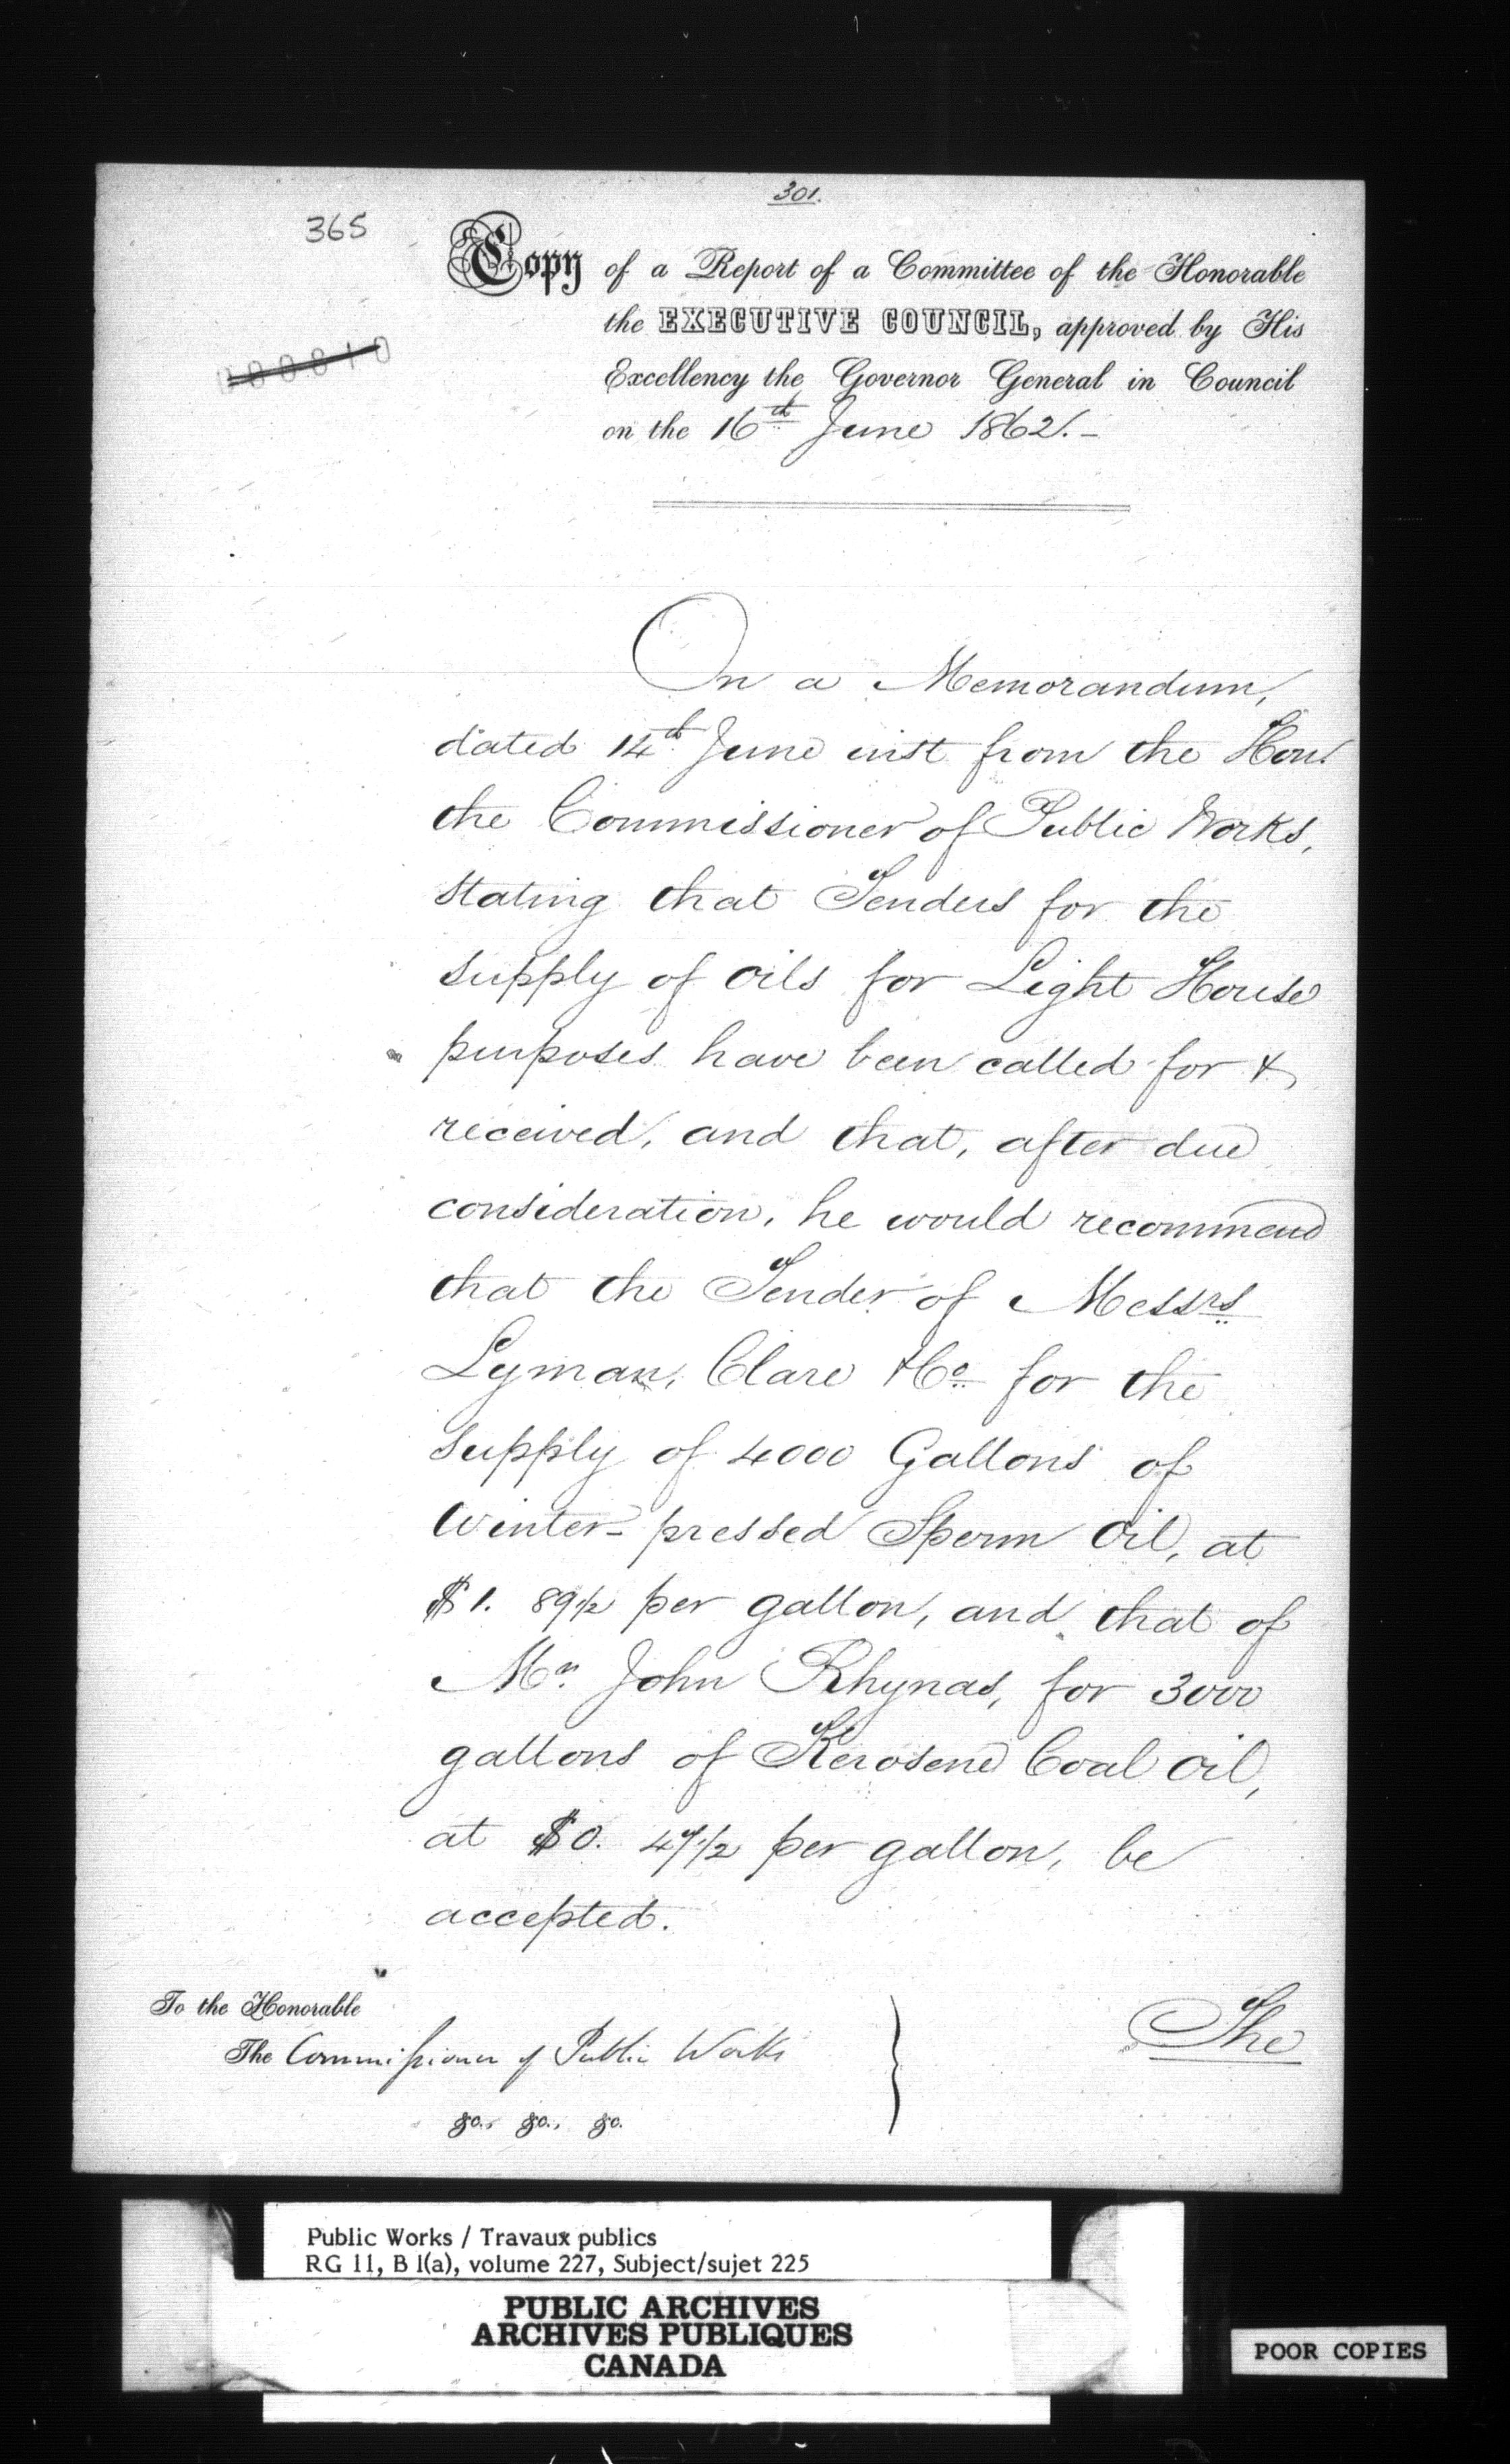 301.
365
Copy of a Report of a Committee of the Honorable
the EXECUTIVE COUNCIL, approved by His
Excellency the Governor General in Council
on the 16th June 1862.-
On a Memorandum,
dated 14th June inst from the Hon.
the Commissioner of Public Works,
stating that Tenders for the
supply of oils for Light House
purposes have been called for &
received, and that, after due
consideration, he would recommend
that the Tender of Messrs
Lyman, Clare & Co for the
supply of 4000 Gallons of
Winter-pressed Sperm Oil, at
$1. 89½ per gallon, and that of
Mr. John Rhynas, for 3000
gallons of Kerosene Coal Oil,
at $0. per gallon, be
accepted.
The
To the Honorable
The Commissioner of Public Works
&c., &c., &c.
Public Works / Travaux publics
RG 11, B 1(a), volume 227, Subject/sujet 225
PUBLIC ARCHIVES
ARCHIVES PUBLIQUES
CANADA
POOR COPIES